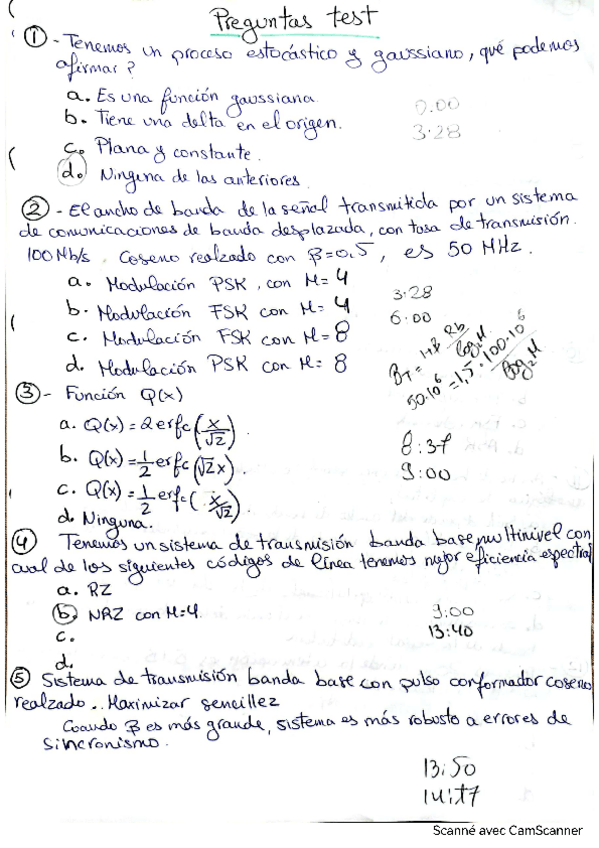 Preguntas test
① - Tenemos un proceso estocástico y gaussiano, qué podemos
afirmar?
a. Es una función gaussiana
0.00
b. Tiene una delta en el origen.
3.28
c. Plana y constante.
d. Ninguna de las anteriores.
② - El ancho de banda de la señal transmitida por un sistema
de comunicaciones de banda desplazada, con tasa de transmisión.
100 Mb/s. Coseno realzado con β=0,5, es 50 MHz.
a. Modulación PSK, con M=4
3.28
b. Modulación FSK con M=4
6.00
c. Modulación FSK con M=8
d. Modulación PSK con M=8
B_T = 1+β Rb/log₂M
50·10⁶ = 1,5·100·10⁶/log₂M
③ - Función Q(x)
a. Q(x) = 2 erfc(x/√2).
8:37
b. Q(x) = 1/2 erfc(√2x).
9:00
c. Q(x) = 1/2 erfc(x/√2)
d. Ninguna.
④ Tenemos un sistema de transmisión banda base multinivel con
cual de los siguientes códigos de línea tenemos mejor eficiencia espectral
a. RZ
b. NRZ con M=4.
9:00
c.
13:40
d.
⑤ Sistema de transmisión banda base con pulso conformador coseno
realzado.. Maximizar sencillez
Cuando β es más grande, sistema es más robusto a errores de
sincronismo.
13:50
14:17
Scanné avec CamScanner